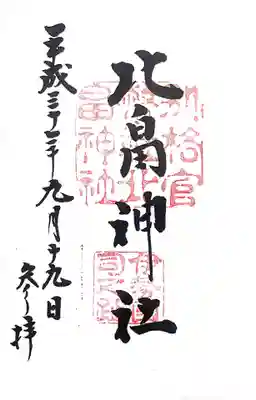 北畠神社
平成三十年九月十九日
参拝
別格官
幣社北
畠神社
伊勢國